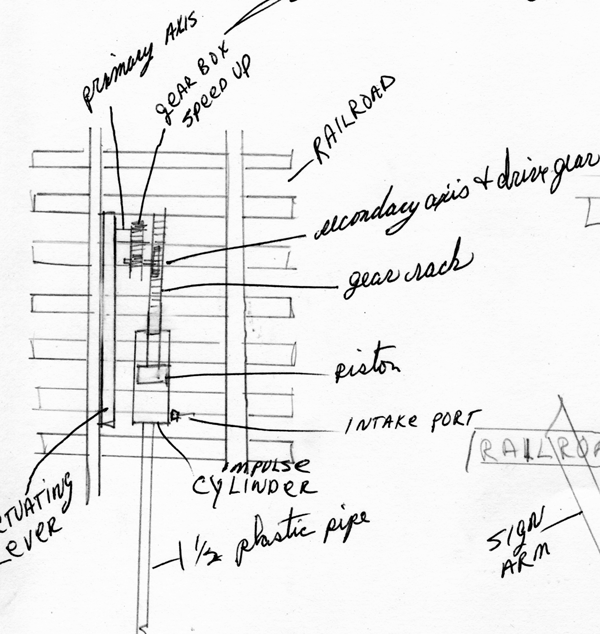 primary AXIS
gEAR BOX
SPEED UP
RAILROAD
secondary axis & drive gear
gear rack
piston
INTAKE PORT
IMPULSE
CYLINDER
CTUATING
LEVER
1 1/2 plastic pipe
RAILROA
SIGN
ARM